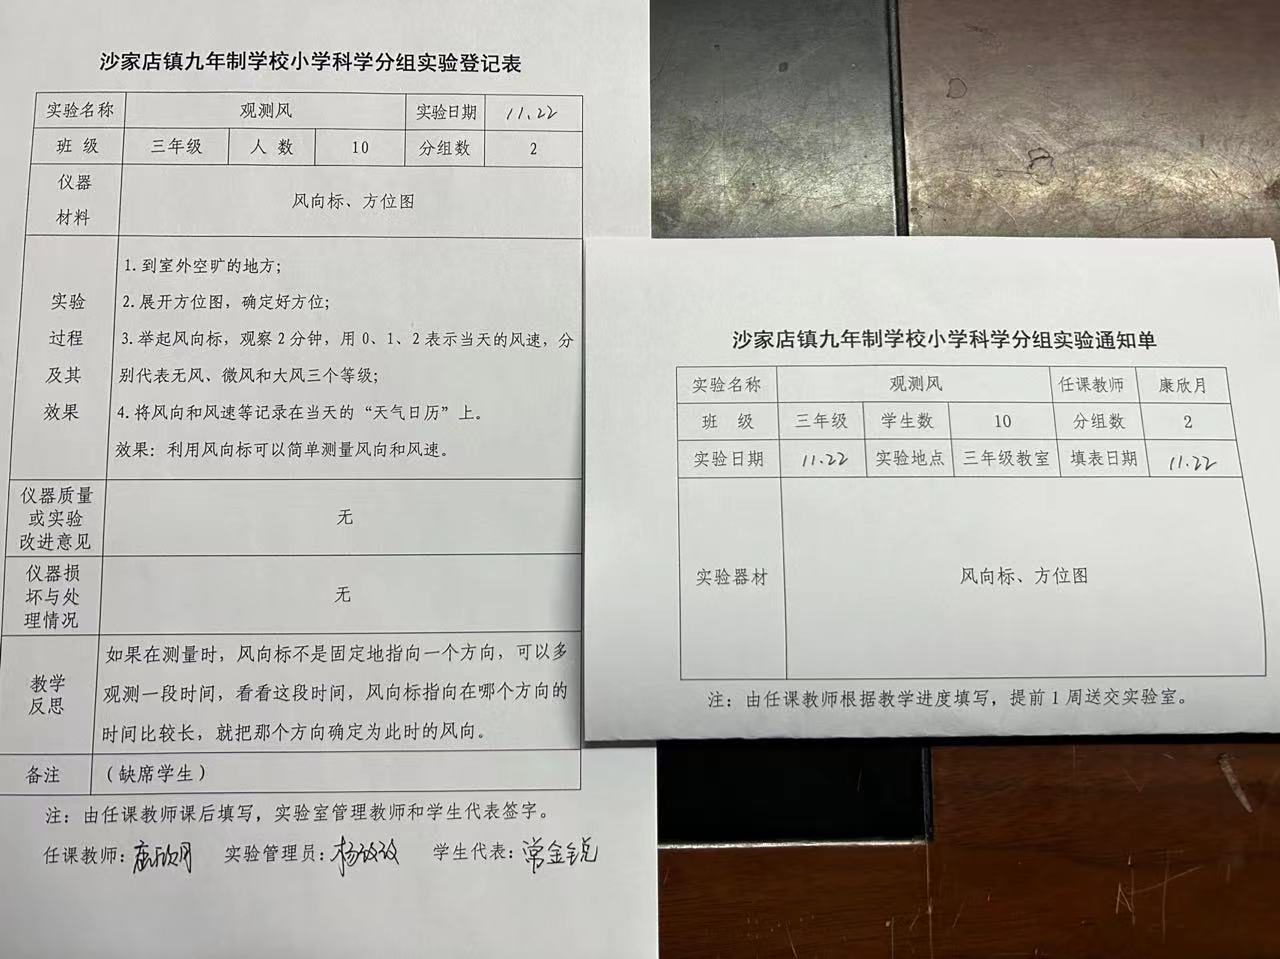 沙家店镇九年制学校小学科学分组实验登记表
实验名称 观测风 实验日期 11.22
班 级 三年级 人 数 10 分组数 2
仪器
材料
风向标、方位图
实验
过程
及其
效果
1.到室外空旷的地方；
2.展开方位图，确定好方位；
3.举起风向标，观察2分钟，用0、1、2表示当天的风速，分
别代表无风、微风和大风三个等级；
4.将风向和风速等记录在当天的“天气日历”上。
效果：利用风向标可以简单测量风向和风速。
仪器质量
或实验
改进意见
无
仪器损
坏与处
理情况
无
教学
反思
如果在测量时，风向标不是固定地指向一个方向，可以多
观测一段时间，看看这段时间，风向标指向在哪个方向的
时间比较长，就把那个方向确定为此时的风向。
备注 （缺席学生）
注：由任课教师课后填写，实验室管理教师和学生代表签字。
任课教师：康欣月 实验管理员：杨改改 学生代表：常金锐
沙家店镇九年制学校小学科学分组实验通知单
实验名称 观测风 任课教师 康欣月
班 级 三年级 学生数 10 分组数 2
实验日期 11.22 实验地点 三年级教室 填表日期 11.22
实验器材 风向标、方位图
注：由任课教师根据教学进度填写，提前1周送交实验室。